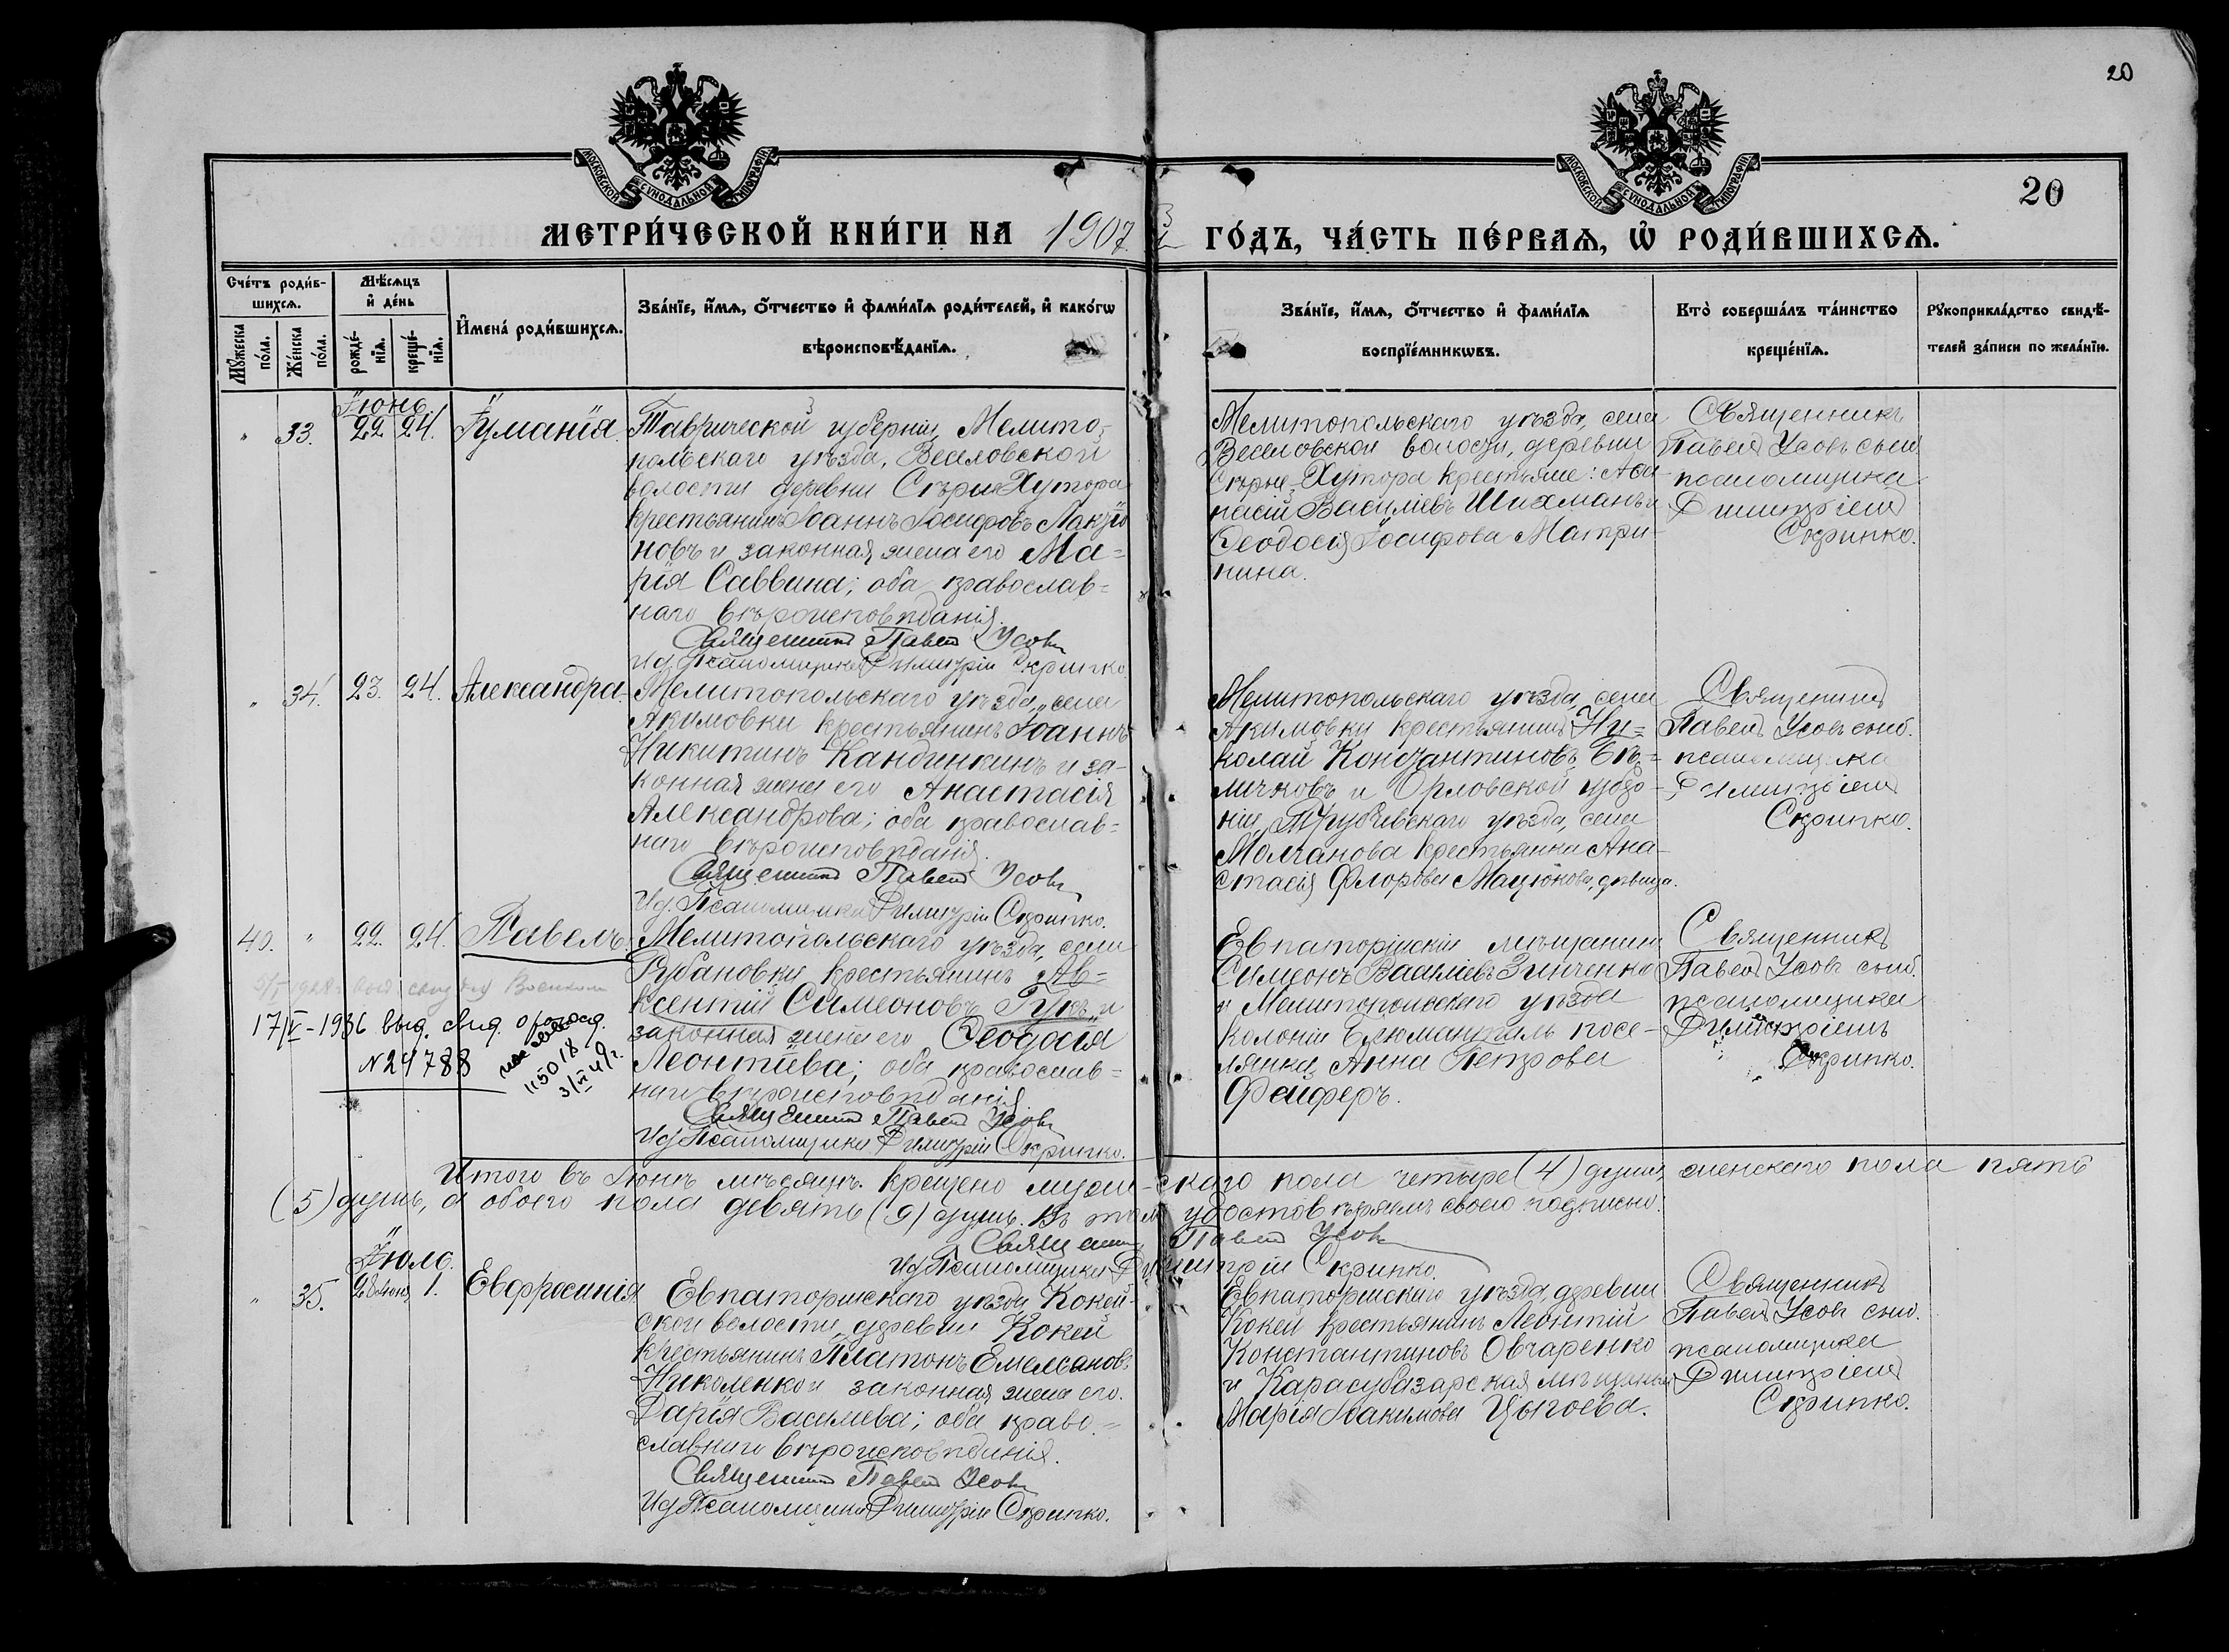 20
МОСКОВСКОЙ СѴНОДАЛЬНОЙ ТИПОГРАФІИ
МОСКОВСКОЙ СѴНОДАЛЬНОЙ ТИПОГРАФІИ
20
МЕТРИ́ЧЕСКОЙ КНИ́ГИ НА 1907 ГО́ДЪ, ЧА́СТЬ ПЕ́РВАѦ, Ѡ҆ РОДИ́ВШИХСѦ.
Сче́тъ роди́в-
шихсѧ.
Мꙋжеска по́ла.
Же́нска по́ла.
Мѣ́сѧцъ
и҆ де́нь
рожде́-
нїѧ.
креще́-
нїѧ.
И҆мена̀ роди́вшихсѧ.
Зва́нїе, и҆́мѧ, ѻ҆́тчество и҆ фами́лїѧ роди́телей, и҆ како́гѡ
вѣроисповѣ́данїѧ.
Зва́нїе, и҆́мѧ, ѻ҆́тчество и҆ фами́лїѧ
воспрїе́мникѡвъ.
Кто̀ соверша́лъ та́инство
креще́нїѧ.
Рꙋкоприкла́дство свидѣ́-
телей за́писи по жела́нїю.
Іюнь.
" 33. 22 24. Іуліанія.
Таврической губерніи, Мелито-
польскаго уѣзда, Веселовской
волости деревни Сѣрые Хутора
крестьянинъ Іоаннъ Іосифовъ
новъ и законная жена его Ма=
рія Саввина; оба православ=
наго вѣроисповѣданія.
Священникъ Павелъ Усовъ
И.д. Псаломщика Димитрій Скрипко.
Мелитопольскаго уѣзда, села
Веселовской волости, деревни
Сѣрые-Хутора крестьяне: Аѳа-
насій Василіевъ Шихманъ и
Ѳеодосія Іосифова Матри-
нина.
Священникъ
Павелъ Усовъ съ и.д.
псаломщика
Димитріемъ
Скрипко.
" 34. 23. 24. Александра
Мелитопольскаго уѣзда, села
Акимовки крестьянинъ Іоаннъ
Никитинъ Кандинкинъ и за-
конная жена его Анастасія
Александрова; оба православ=
наго вѣроисповѣданія.
Священникъ Павелъ Усовъ
И.д. Псаломщика Димитрій Скрипко.
Мелитопольскаго уѣзда, села
Акимовки крестьянинъ Ни=
колай Константиновъ Бѣ=
личковъ и Орловской губер-
ніи, Трубчевскаго уѣзда, села
Молчанова крестьянка Ана-
стасія Флорова Мацюкова, дѣвица.
Священникъ
Павелъ Усовъ съ и.д.
псаломщика
Димитріемъ
Скрипко.
40. " 22. 24. Павелъ.
Мелитопольскаго уѣзда, села
Рубановки крестьянинъ Ав=
ксентій Симеоновъ Гукъ и
законная жена его Ѳеодосія
Леонтіева; оба православ=
наго вѣроисповѣданія
Священникъ Павелъ Усовъ
И.д. Псаломщика Димитрій Скрипко.
17/V-1936 выд. свид. о рожд.
N 24788
115018
3/VI 49г.
Евпаторійскій мѣщанинъ
Симеонъ Василіевъ Зинченко
и Мелитопольскаго уѣзда
колоніи Блюменталь посе-
лянка Анна Петрова
Фейферъ.
Священникъ
Павелъ Усовъ съ и.д.
псаломщика
Димитріемъ
Скрипко.
Итого въ Іюнѣ мѣсяцѣ крещено мужескаго пола четыре (4) души, женскаго пола пять
(5) душъ, а обоего пола девять (9) душъ. Въ томъ удостовѣряемъ своею подписью:
Священникъ Павелъ Усовъ
И.д. Псаломщика Димитрій Скрипко.
Іюль.
" 35. 28 июня 1. Евфросинія
Евпаторійскаго уѣзда, Кокей-
ской волости, деревни Кокей
крестьянинъ Платонъ Емельяновъ
Николенко и законная жена его
Дарія Василіева; оба право=
славнаго вѣроисповѣданія.
Священникъ Павелъ Усовъ
И.д. Псаломщика Димитрій Скрипко.
Евпаторійскаго уѣзда, деревни
Кокей крестьянинъ Леонтій
Константиновъ Овчаренко
и Карасубазарская мѣщанка
Марія Іоакимова Цыгоева.
Священникъ
Павелъ Усовъ съ и.д.
псаломщика
Димитріемъ
Скрипко.